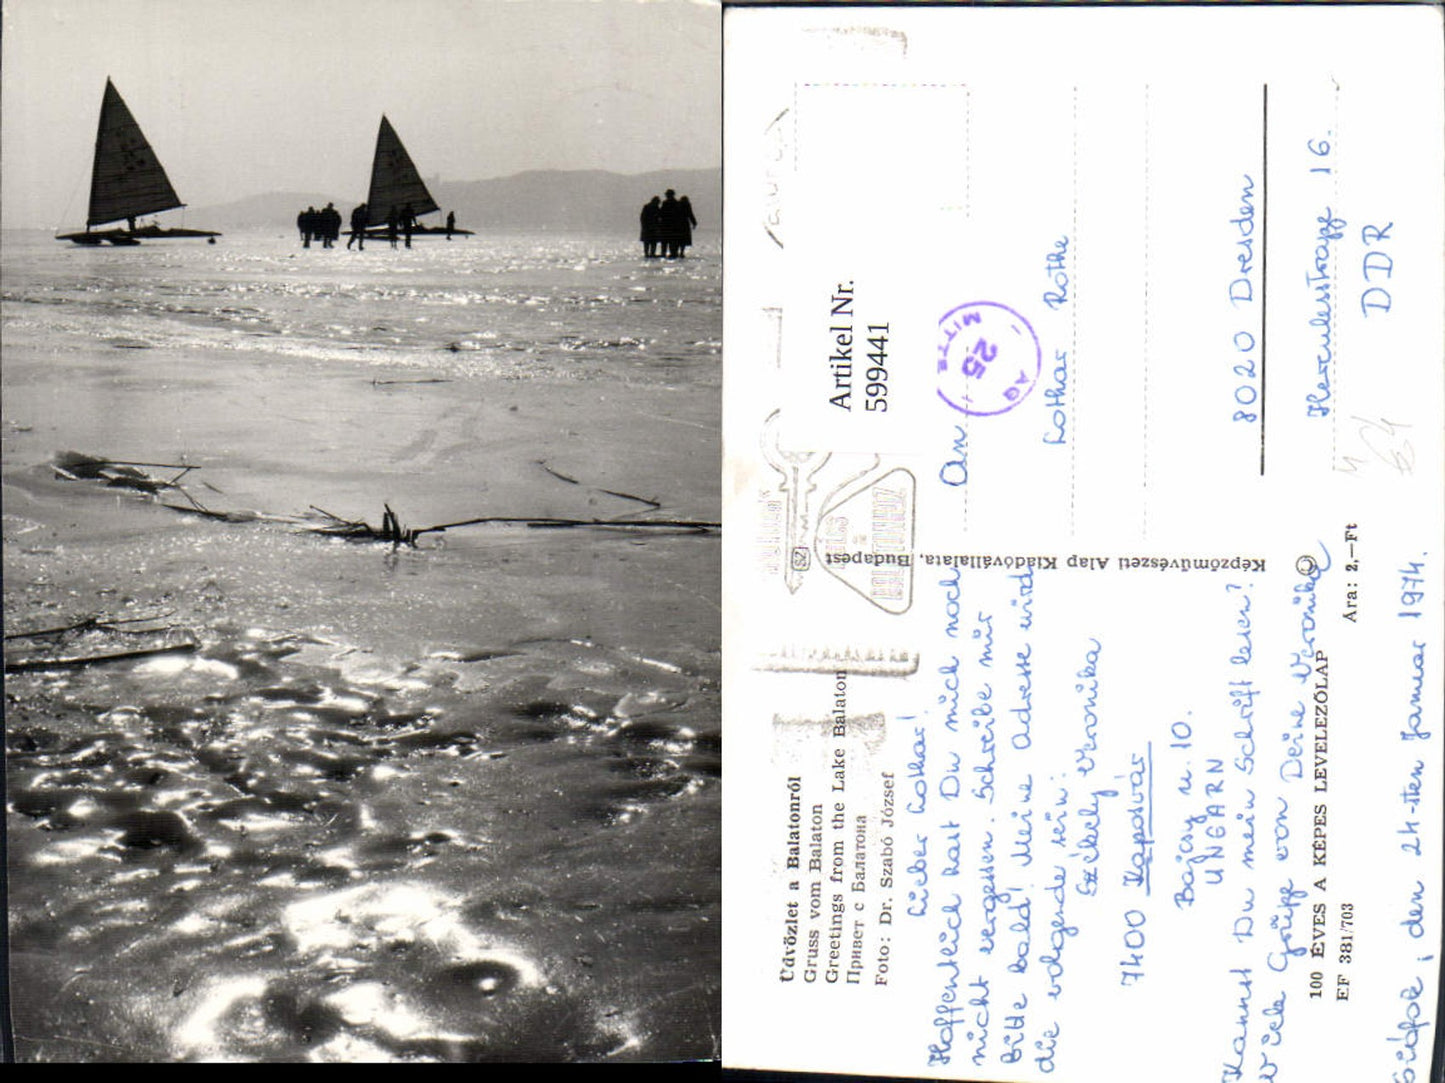 Üdvözlet a Balatonról
Gruss vom Balaton
Greetings from the Lake Balaton
Привет с Балатона
Foto: Dr. Szabó József
Lieber Lothar!
Hoffentlich hast Du mich noch
nicht vergessen. Schreibe mir
bitte bald! Meine Adresse wird
die volgende sein:
Székely Veronika
7400 Kaposvár
Bajcsy u. 10.
UNGARN
Kannst Du mein Schrift lesen?
Viele Grüße von Deine Veronika
100 ÉVES A KÉPES LEVELEZŐLAP
EF 381/703
Ára: 2,—Ft
Siófok, den 24-sten Januar 1974.
Képzőművészeti Alap Kiadóvállalata, Budapest
Artikel Nr.
599441
MITTE
25
AG
An
Lothar Rothe
8020 Dresden
Herculesstraße 16.
DDR